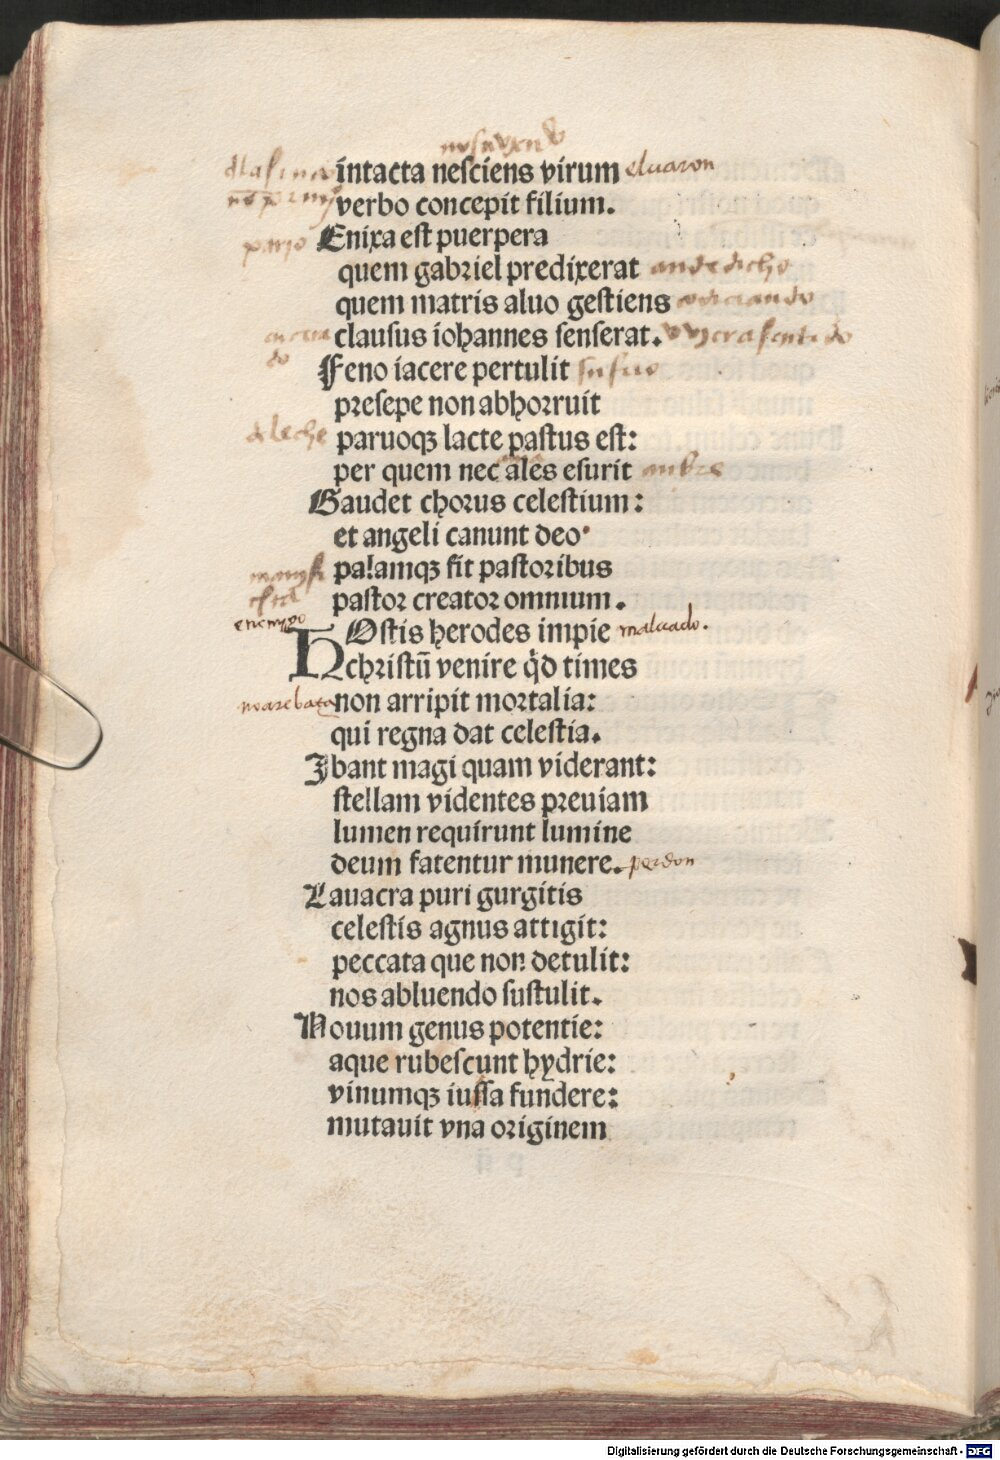 intacta nesciens virum eluaron
verbo concepit filium.
pario Enixa est puerpera
quem gabriel predixerat
quem matris aluo gestiens
clausus iohannes senserat.
Feno iacere pertulit sufrio
presepe non abhorruit
d leche paruoqꝫ lacte pastus est:
per quem nec ales esurit anbre
Gaudet chorus celestium:
et angeli canunt deo·
palamqꝫ fit pastoribus
pastor creator omnium.
enemygo HOstis herodes impie maluado.
christū venire qd times
noarebata non arripit mortalia:
qui regna dat celestia.
Ibant magi quam viderant:
stellam videntes preuiam
lumen requirunt lumine
deum fatentur munere. perdon
Lauacra puri gurgitis
celestis agnus attigit:
peccata que non detulit:
nos abluendo sustulit.
Nouum genus potentie:
aque rubescunt hydrie:
vinumqꝫ iussa fundere:
mutauit vna originem
Digitalisierung gefördert durch die Deutsche Forschungsgemeinschaft - DFG